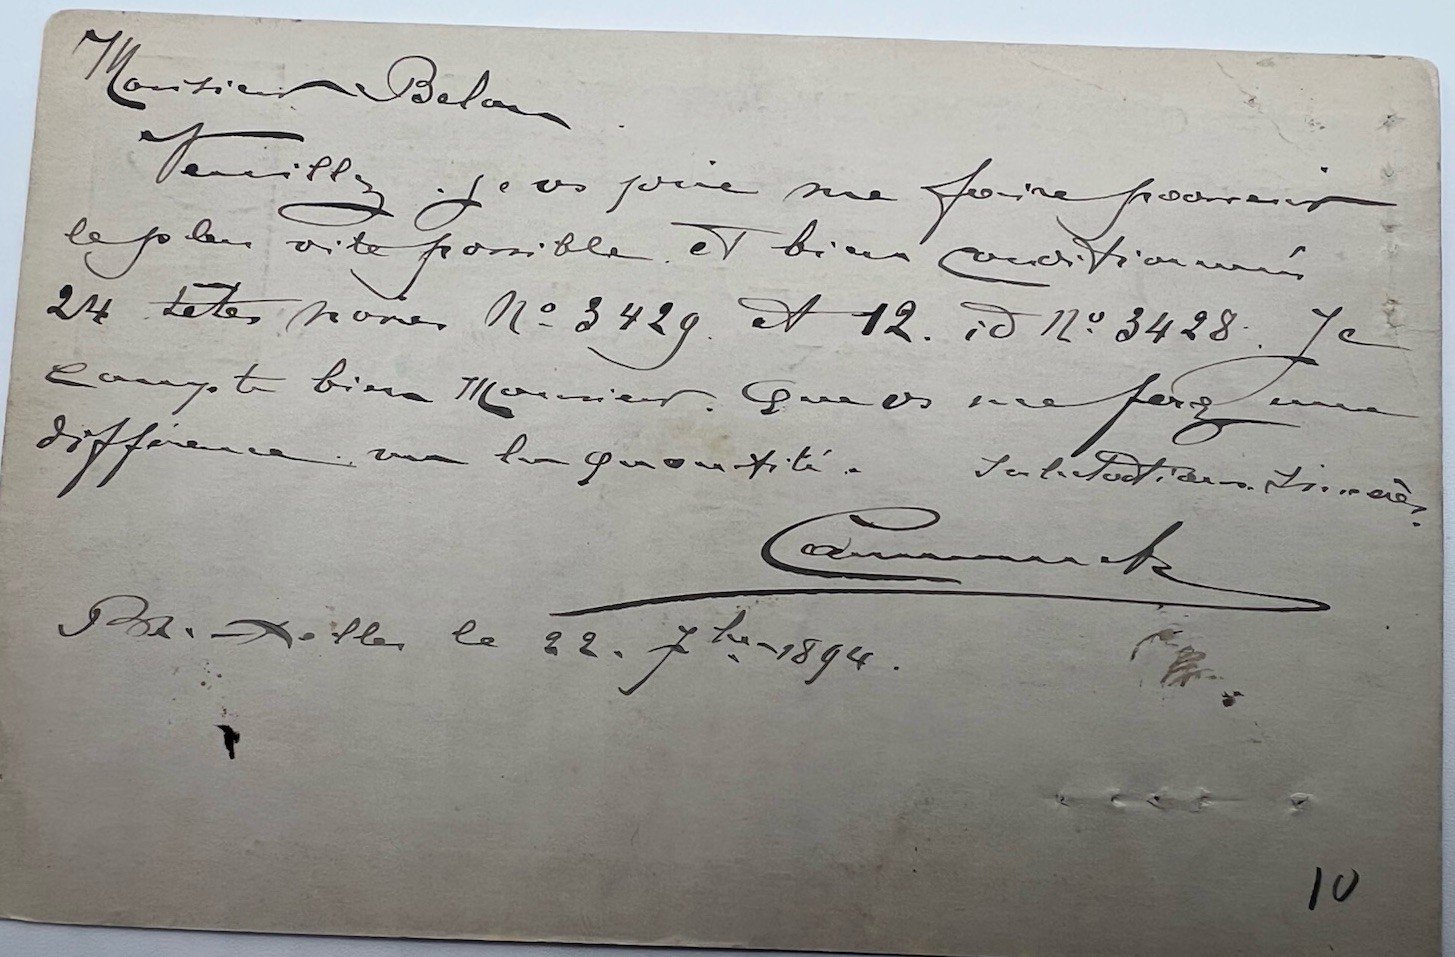 Monsieur Belon
Veuillez, je vs prie me faire parvenir
le plus vite possible et bien conditionnés
24 têtes noires No 3429 et 12 id No 3428. Je
compte bien Monsieur. que vs me ferez une
différence vu la quantité. Salutations sincères.
Bruxelles le 22. 7bre 1894.
10